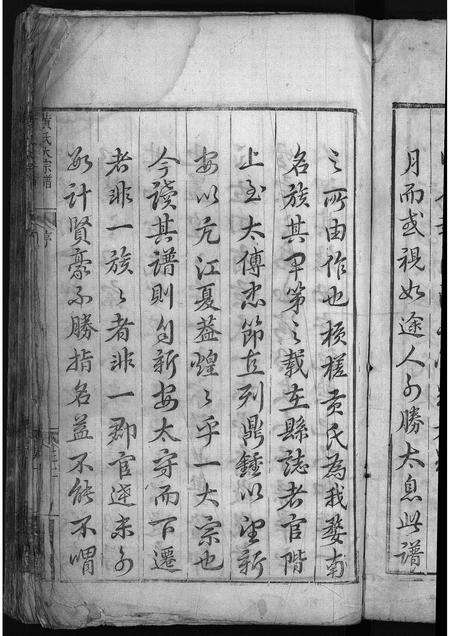 月而或視如途人可勝太息此譜
之所由作也橫槎黃氏為我婺南
名族其甲第之載在縣誌者官階
上至太傅忠節且列鼎鍾以望新
安以亢江夏蓋煌々乎一大宗也
今讀其譜則自新安太守而下遷
者非一族々者非一郡官迹未可
數計賢豪不勝指名益不能不喟
黃氏大宗譜
序